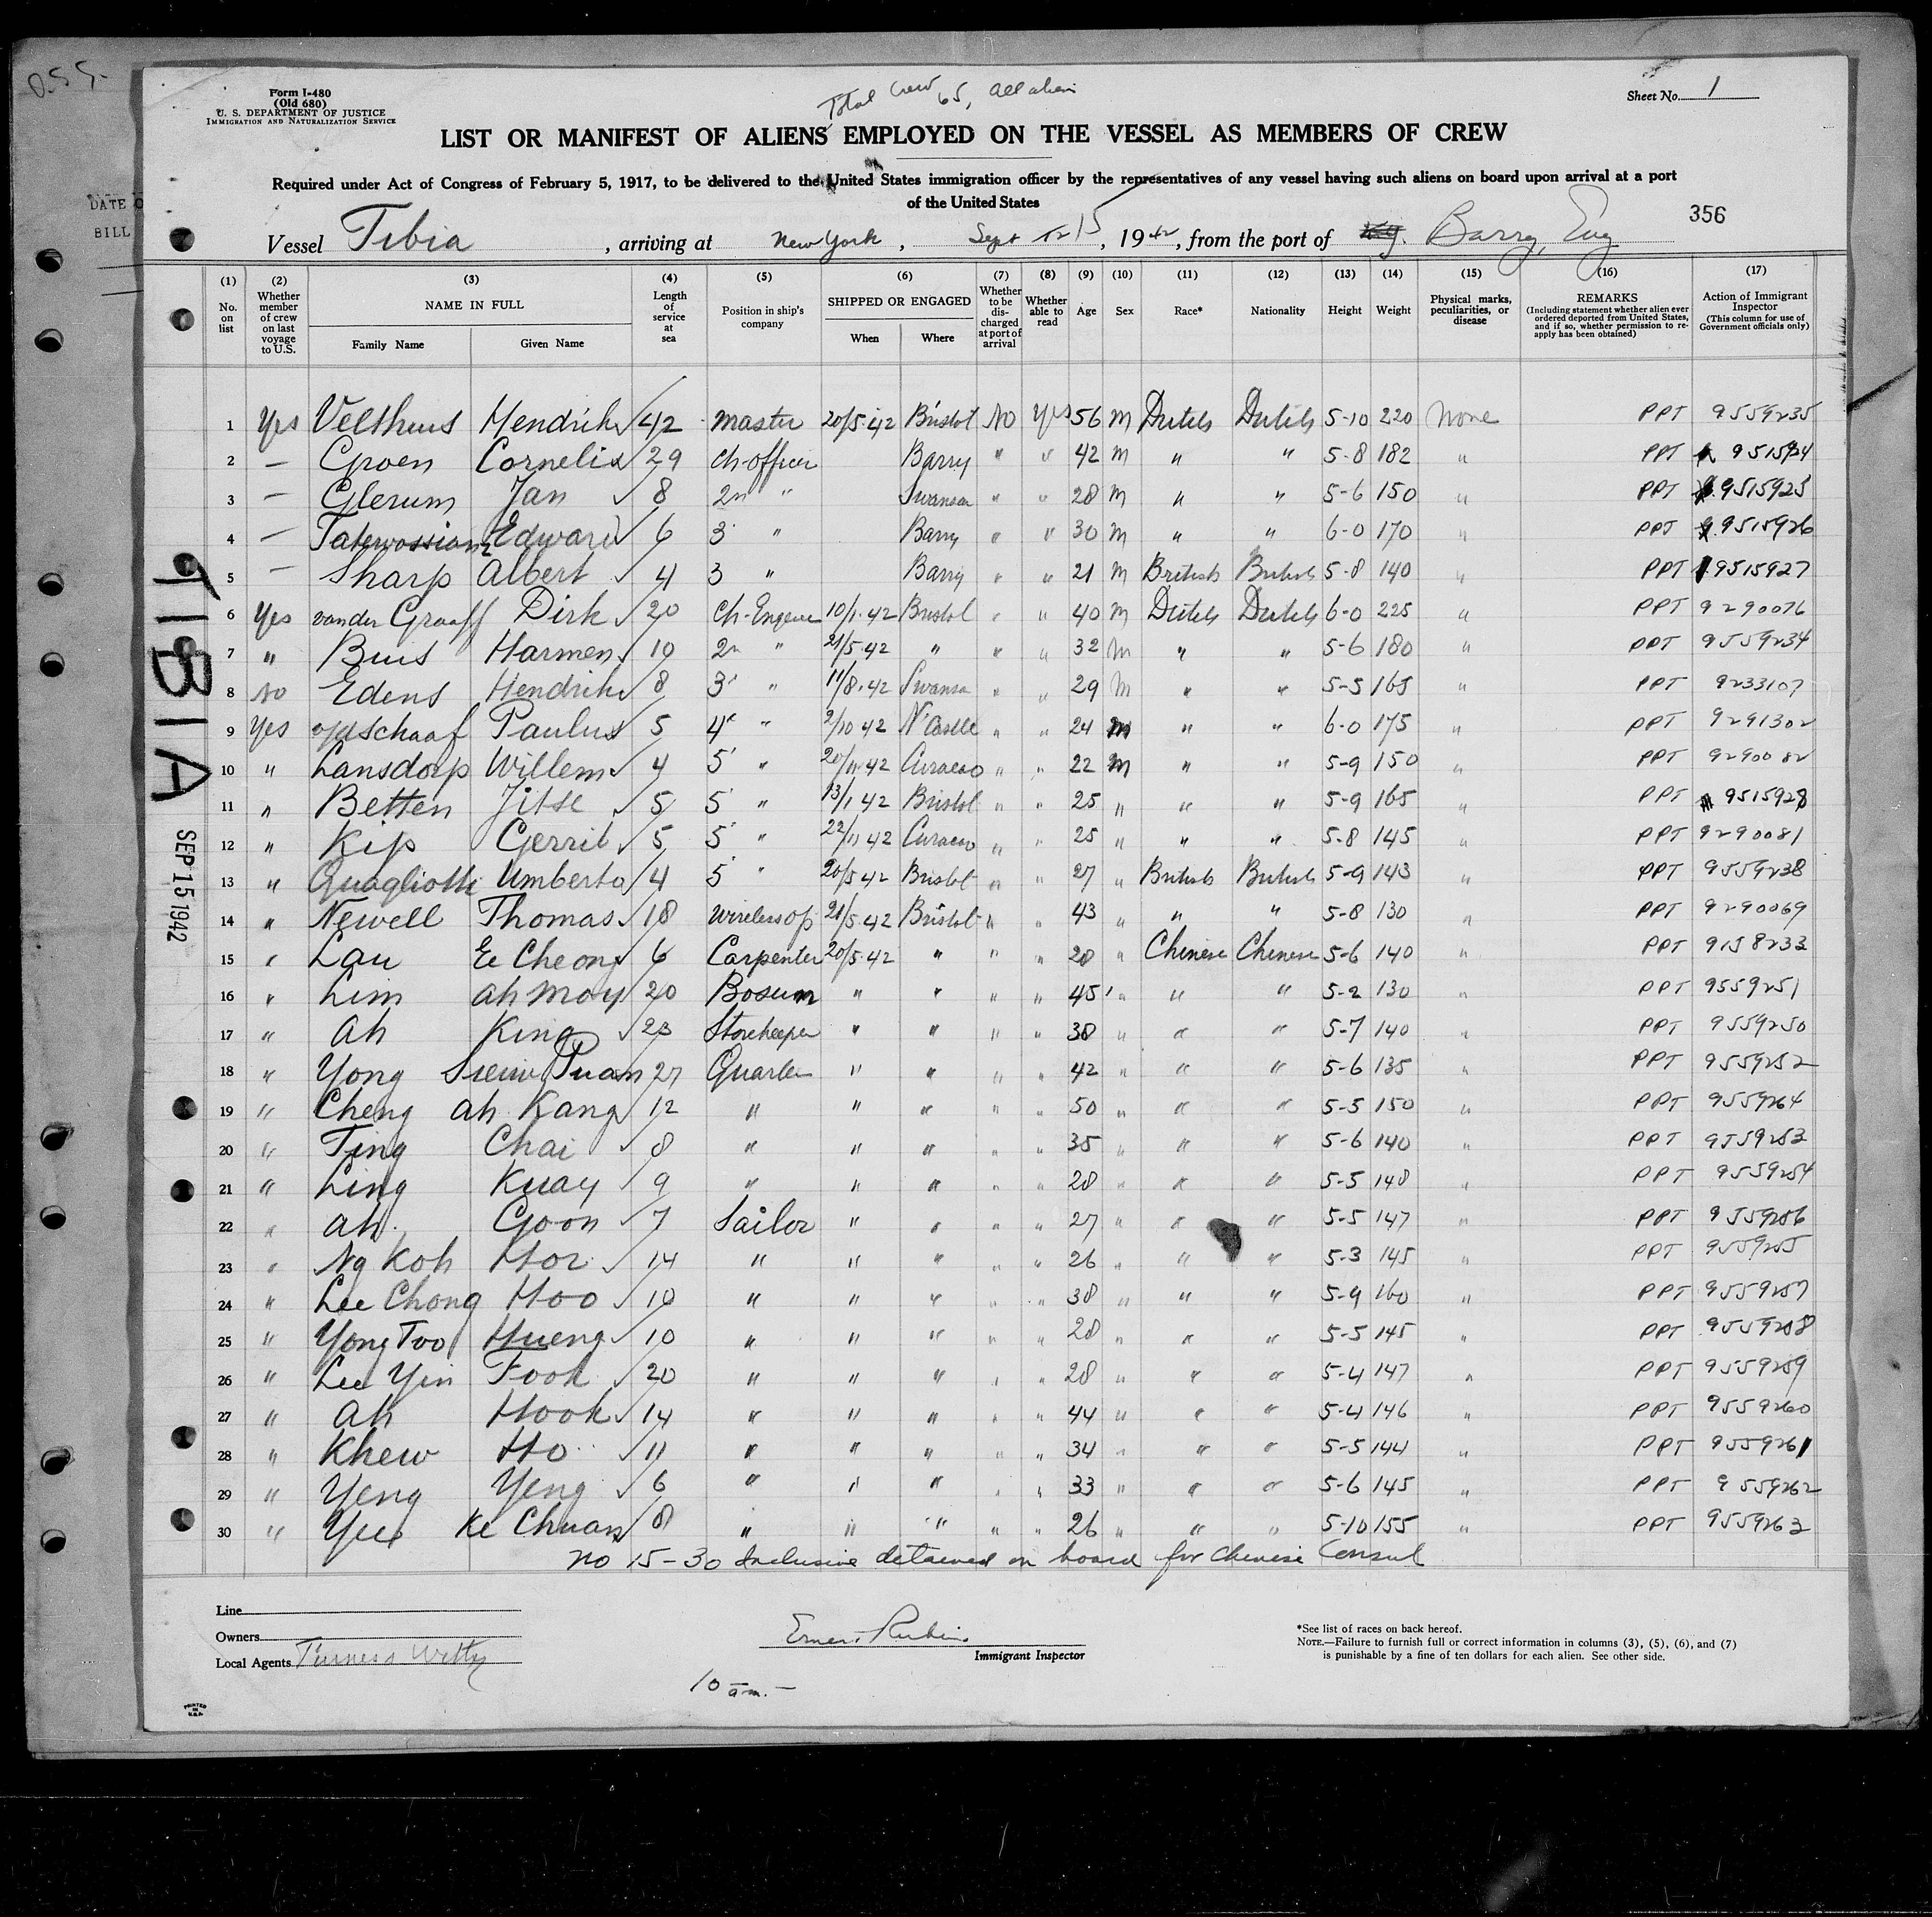 O.S.S.
Form I-480
(Old 680)
U. S. DEPARTMENT OF JUSTICE
IMMIGRATION AND NATURALIZATION SERVICE
Total Crew 65, all alien
Sheet No. 1
LIST OR MANIFEST OF ALIENS EMPLOYED ON THE VESSEL AS MEMBERS OF CREW
Required under Act of Congress of February 5, 1917, to be delivered to the United States immigration officer by the representatives of any vessel having such aliens on board upon arrival at a port
of the United States
DATE
BILL
356
Vessel Tibia, arriving at New York, Sept 15, 1942, from the port of Barry, Eng
(1) (2) (3) (4) (5) (6) (7) (8) (9) (10) (11) (12) (13) (14) (15) (16) (17)
No. on list
Whether member of crew on last voyage to U.S.
NAME IN FULL
Family Name
Given Name
Length of service at sea
Position in ship's company
SHIPPED OR ENGAGED
When
Where
Whether to be discharged at port of arrival
Whether able to read
Age
Sex
Race*
Nationality
Height
Weight
Physical marks, peculiarities, or disease
REMARKS
(Including statement whether alien ever ordered deported from United States, and if so, whether permission to re-apply has been obtained)
Action of Immigrant Inspector
(This column for use of Government officials only)
1 Yes Velthuis Hendrik 42 Master 20/5-42 Bristol No Yes 56 M Dutch Dutch 5-10 220 None PPT 9559235
2 — Groen Cornelis 29 Ch-officer Barry " " 42 M " " 5-8 182 " PPT 9515924
3 — Glerum Jan 8 2n " Swansea " " 28 M " " 5-6 150 " PPT 9515925
4 — Edward 6 3 " Barry " " 30 M " " 6-0 170 " PPT 9515926
5 — Sharp Albert 4 3 " Barry " " 21 M British British 5-8 140 " PPT 9515927
6 Yes van der Graaff Dirk 20 Ch-Engineer 10/1-42 Bristol " " 40 M Dutch Dutch 6-0 225 " PPT 9290076
7 " Buis Harmen 10 2n " 21/5-42 " " " 32 M " " 5-6 180 " PPT 9559234
8 No Edens Hendrik 8 3 " 11/8-42 Swansea " " 29 M " " 5-5 165 " PPT 9233107
9 Yes v/d Schaaf Paulus 5 4 " 2/10 42 N'Castle " " 24 M " " 6-0 175 " PPT 9291302
10 " Lansdorp Willem 4 5 " 20/11-42 Curacao " " 22 M " " 5-9 150 " PPT 9290082
11 " Betten Jitse 5 5 " 13/1 42 Bristol " " 25 " " " 5-9 165 " PPT 9515928
12 " Kip Gerrit 5 5 " 22/11 42 Curacao " " 25 " " " 5-8 145 " PPT 9290081
13 " Quagliotti Umberto 4 5 " 20/5 42 Bristol " " 27 " British British 5-9 143 " PPT 9559238
14 " Newell Thomas 18 Wireless op 21/5-42 Bristol " " 43 " " " 5-8 130 " PPT 9290069
15 " Lau Ee Cheong 6 Carpenter 20/5-42 " " " 28 " Chinese Chinese 5-6 140 " PPT 9158233
16 " Lim Ah Moy 20 Bosun " " " " 45 " " " 5-2 130 " PPT 9559251
17 " Ah King 23 Storekeeper " " " " 38 " " " 5-7 140 " PPT 9559250
18 " Yong Siew Puan 27 Quarter " " " " 42 " " " 5-6 135 " PPT 9559252
19 " Cheng Ah Kang 12 " " " " " 50 " " " 5-5 150 " PPT 9559264
20 " Ting Chai 8 " " " " " 35 " " " 5-6 140 " PPT 9559253
21 " Ling Kuay 9 " " " " " 28 " " " 5-5 148 " PPT 9559254
22 " Ah Goon 7 Sailor " " " " 27 " " " 5-5 147 " PPT 9559256
23 " Ng Koh Hor 14 " " " " " 26 " " " 5-3 145 " PPT 9559255
24 " Lee Chong Hoo 10 " " " " " 38 " " " 5-9 160 " PPT 9559257
25 " Yong Too Hueng 10 " " " " " 28 " " " 5-5 145 " PPT 9559258
26 " Lee Yin Fook 20 " " " " " 28 " " " 5-4 147 " PPT 9559259
27 " Ah Hook 14 " " " " " 44 " " " 5-4 146 " PPT 9559260
28 " Khew Ho 11 " " " " " 34 " " " 5-5 144 " PPT 9559261
29 " Yeng Yeng 6 " " " " " 33 " " " 5-6 145 " PPT 9559262
30 " Yee Ke Chuan 8 " " " " " 26 " " " 5-10 155 " PPT 9559263
no 15-30 inclusive detained on board for Chinese Consul
TIBIA
SEP 15 1942
Line
Owners
Local Agents
Immigrant Inspector
10 am.—
*See list of races on back hereof.
NOTE.—Failure to furnish full or correct information in columns (3), (5), (6), and (7)
is punishable by a fine of ten dollars for each alien. See other side.
PRINTED
IN
U.S.A.